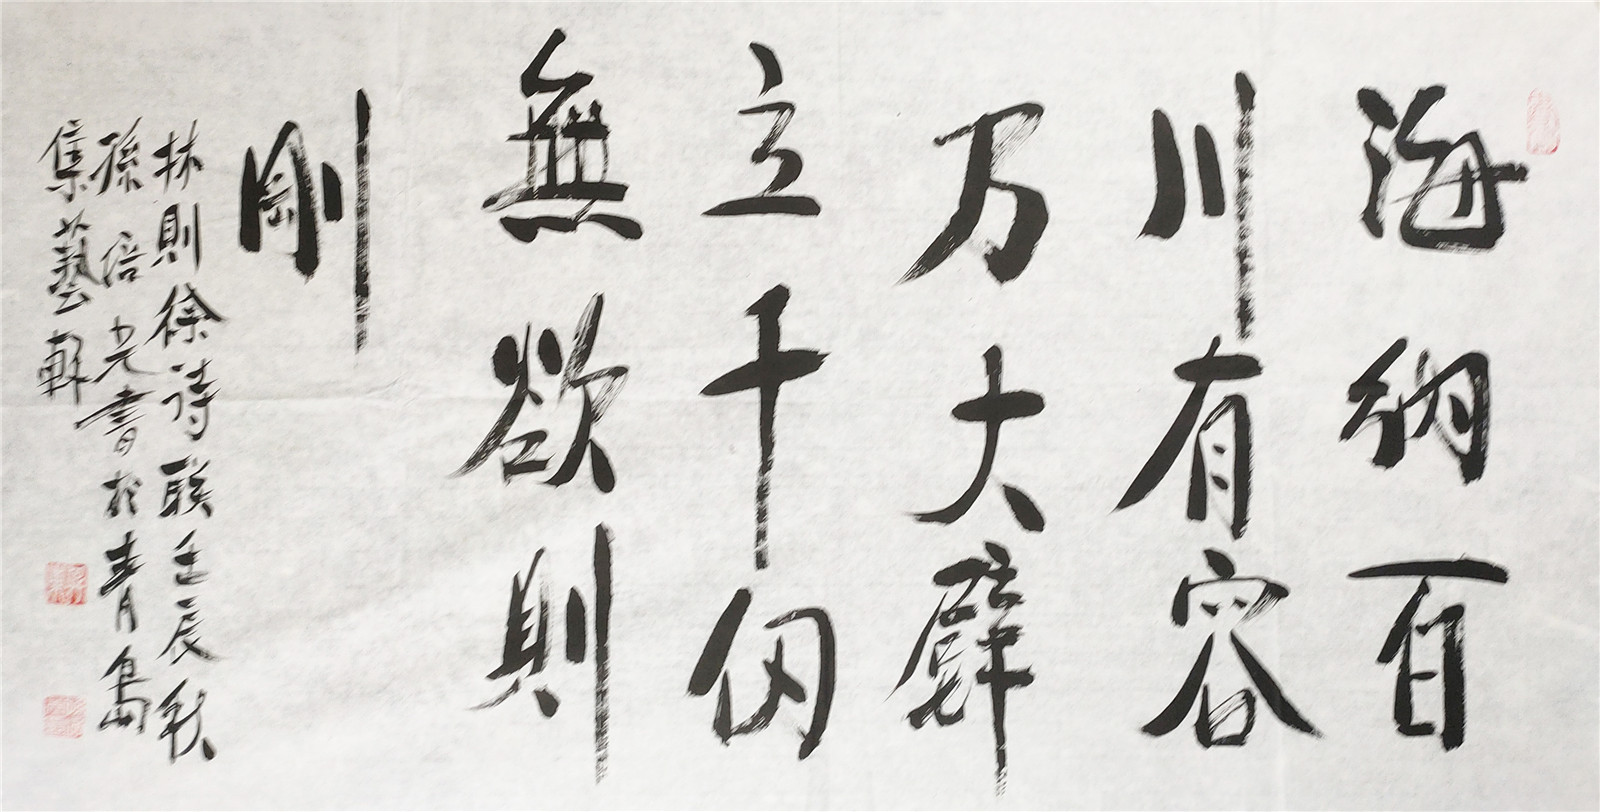 海納百
川有容
万大壁
立千仞
無欲則
剛
林則徐詩聯壬辰秋
孫培光書於青島
集藝軒